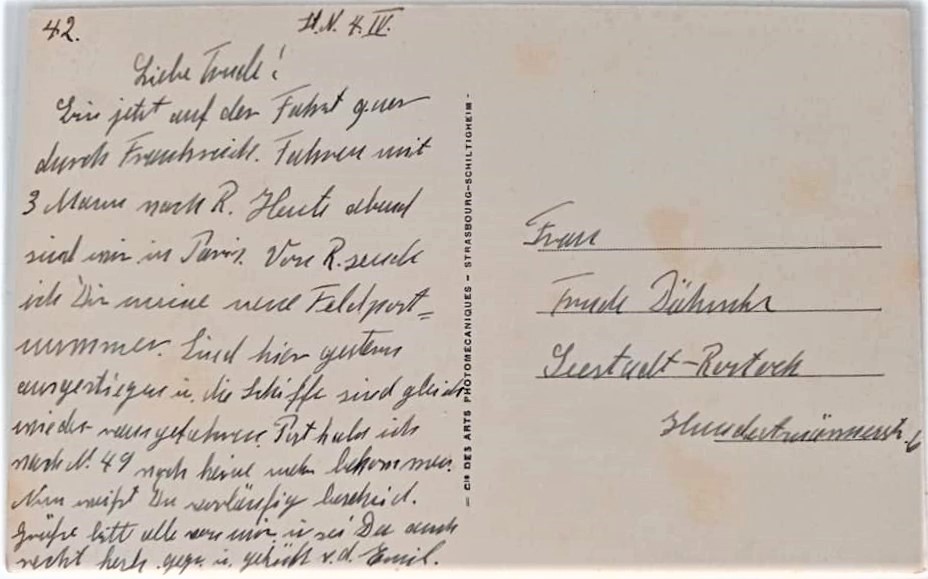 42. St.N. 4. IV.
Liebe Trude!
Bin jetzt auf der Fahrt quer
durch Frankreich. Fahren mit
3 Mann nach R. Heute abend
sind wir in Paris. Von R. sende
ich Dir meine neue Feldpost=
nummer. Sind hier gestern
ausgestiegen u. die Schiffe sind gleich
wieder rausgefahren. Post habe ich
nach N. 49 noch keine mehr bekommen.
Nun weißt Du vorläufig bescheid.
Grüße bitt alle von mir u. sei Du auch
recht herz. gegr. u. geküßt v. d. Emil.
— CIE DES ARTS PHOTOMECANIQUES – STRASBOURG-SCHILTIGHEIM -
Frau
Trude
Seestadt-Rostock
Hundertmännerstr. 6